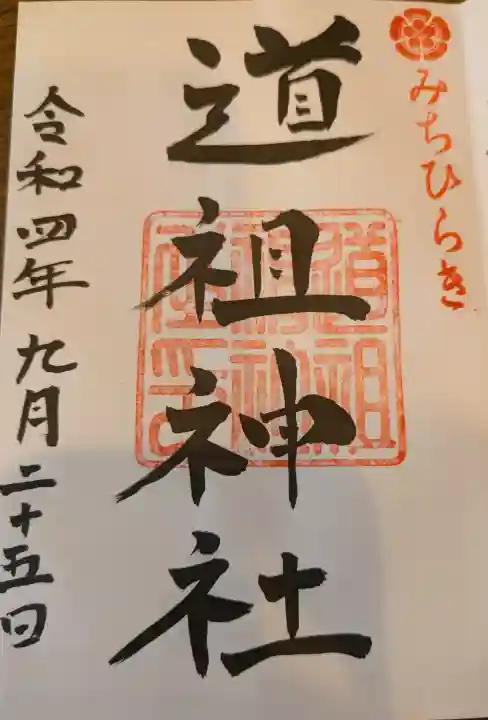 みちひらき
道祖神社
道祖神社
令和四年九月二十五日